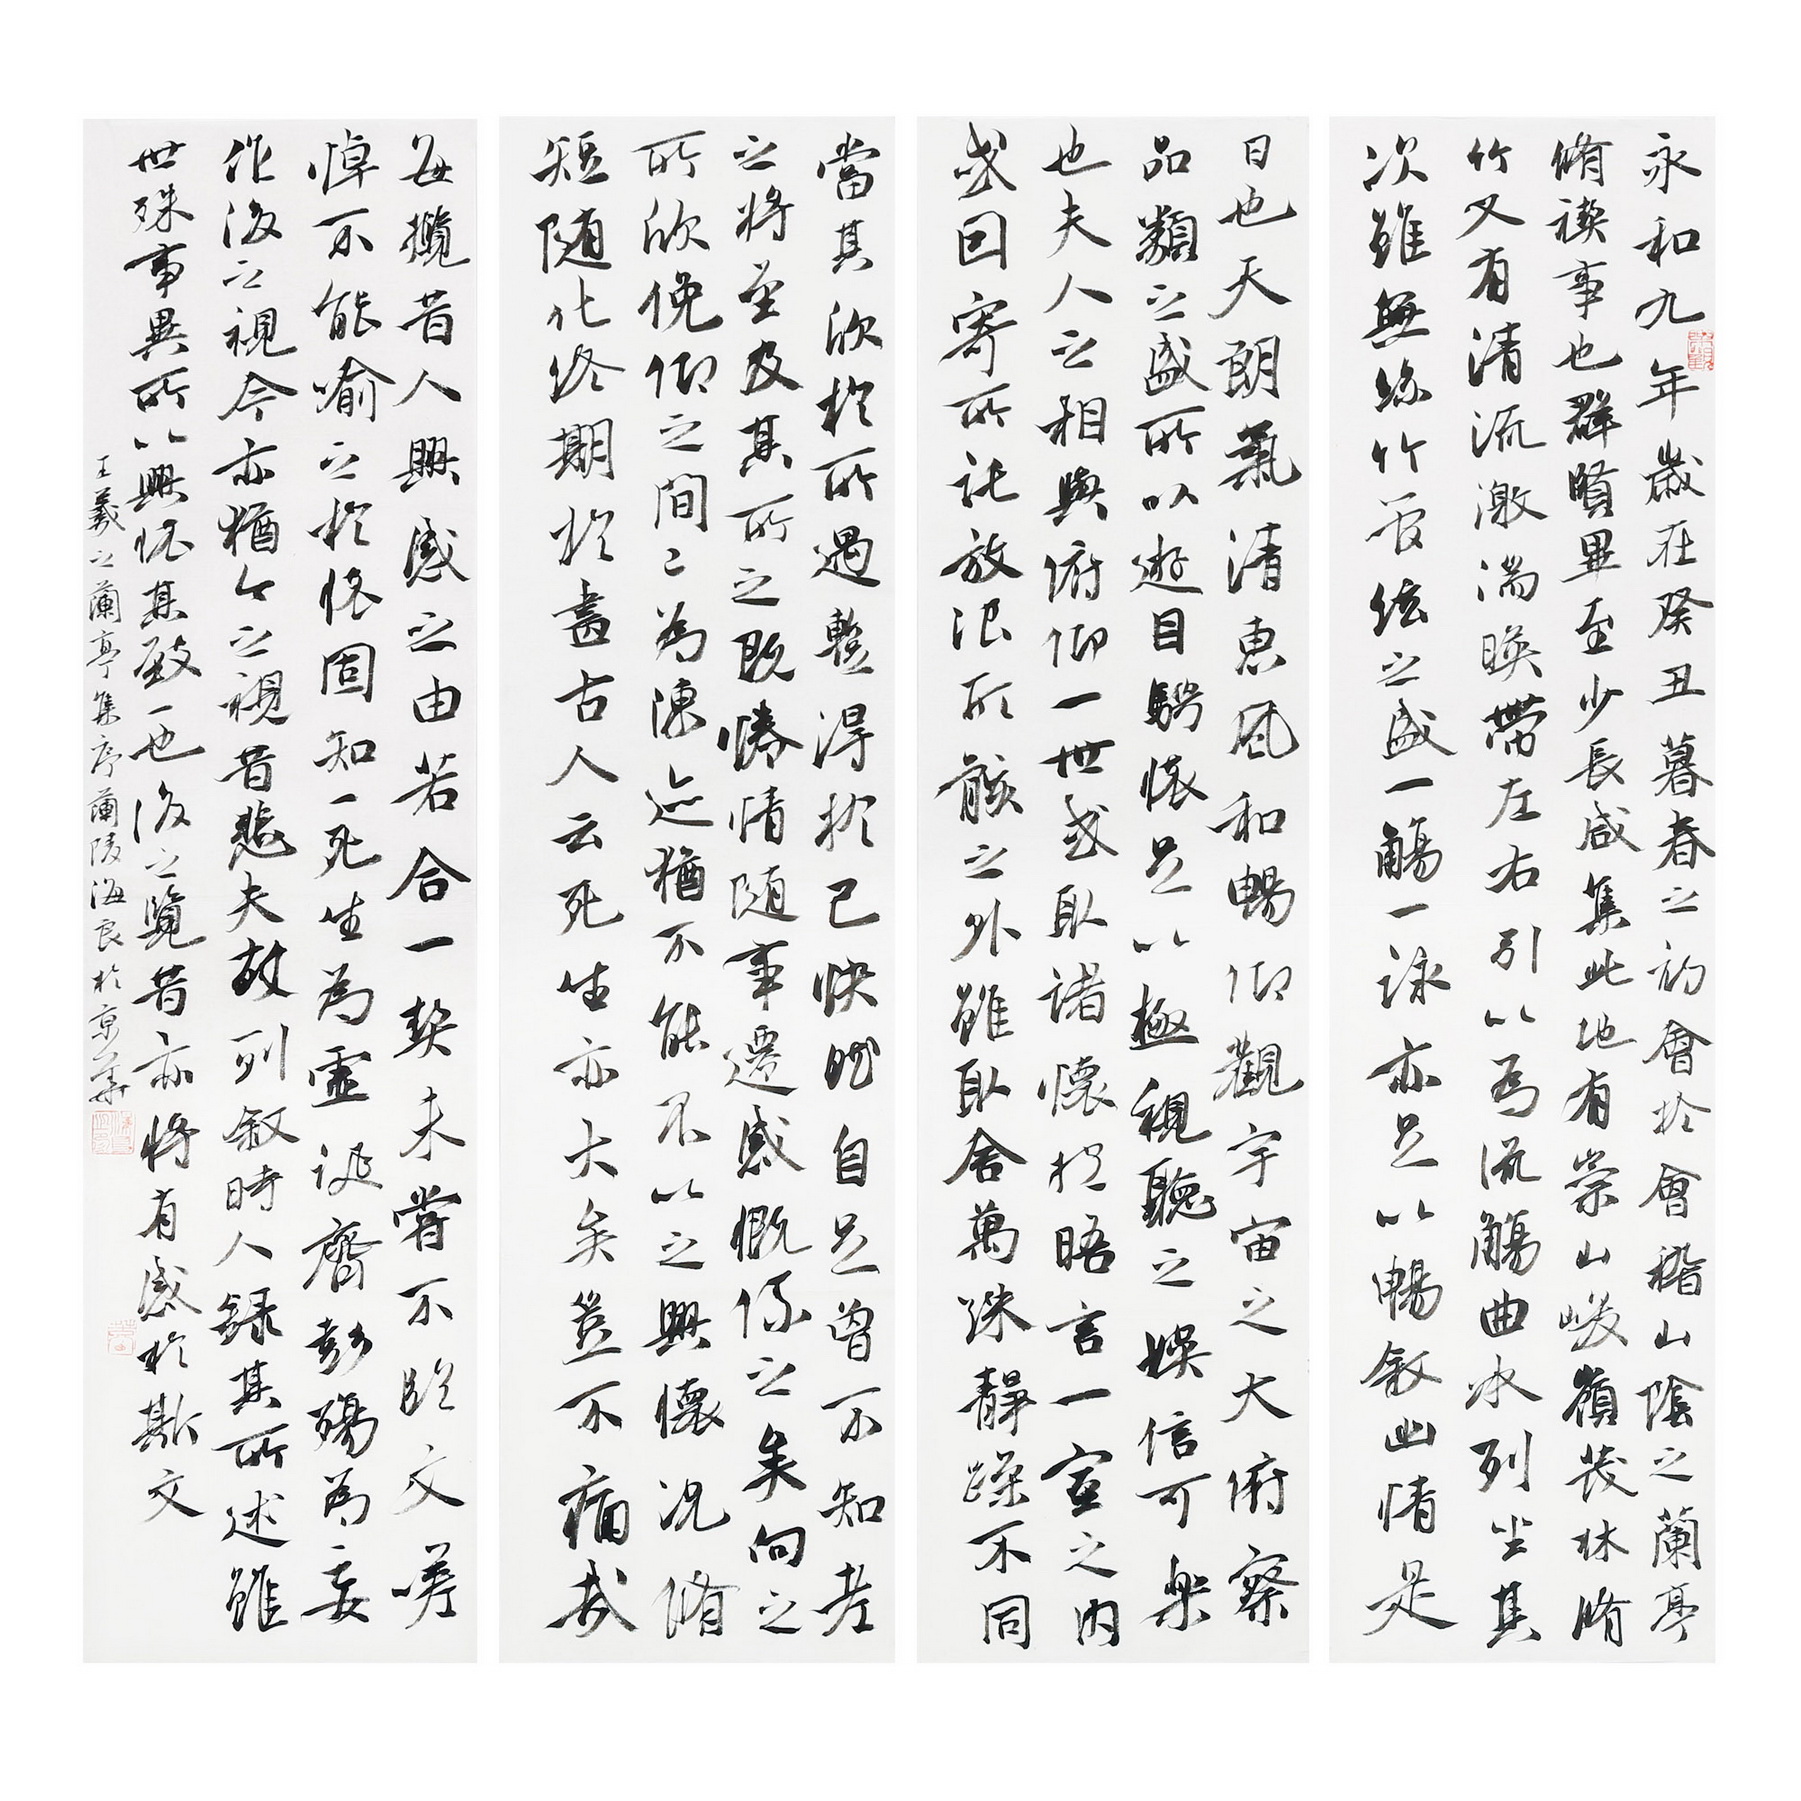 永和九年歲在癸丑暮春之初會於會稽山陰之蘭亭
脩禊事也群賢畢至少長咸集此地有崇山峻嶺茂林脩
竹又有清流激湍暎帶左右引以為流觴曲水列坐其
次雖無絲竹管弦之盛一觴一詠亦足以暢敘幽情是
日也天朗氣清惠風和暢仰觀宇宙之大俯察
品類之盛所以遊目騁懷足以極視聽之娛信可樂
也夫人之相與俯仰一世或取諸懷抱晤言一室之內
或因寄所託放浪形骸之外雖取舍萬殊靜躁不同
當其欣於所遇暫得於己快然自足曾不知老
之將至及其所之既惓情隨事遷感慨係之矣向之
所欣俛仰之間〻為陳迹猶不能不以之興懷況脩
短隨化終期於盡古人云死生亦大矣豈不痛哉
每攬昔人興感之由若合一契未嘗不臨文嗟
悼不能喻之於懷固知一死生為虛誕齊彭殤為妄
作後之視今亦猶今之視昔悲夫故列敘時人錄其所述雖
世殊事異所以興懷其致一也後之覽昔亦將有感於斯文
王羲之蘭亭集序蘭陵海良於京華